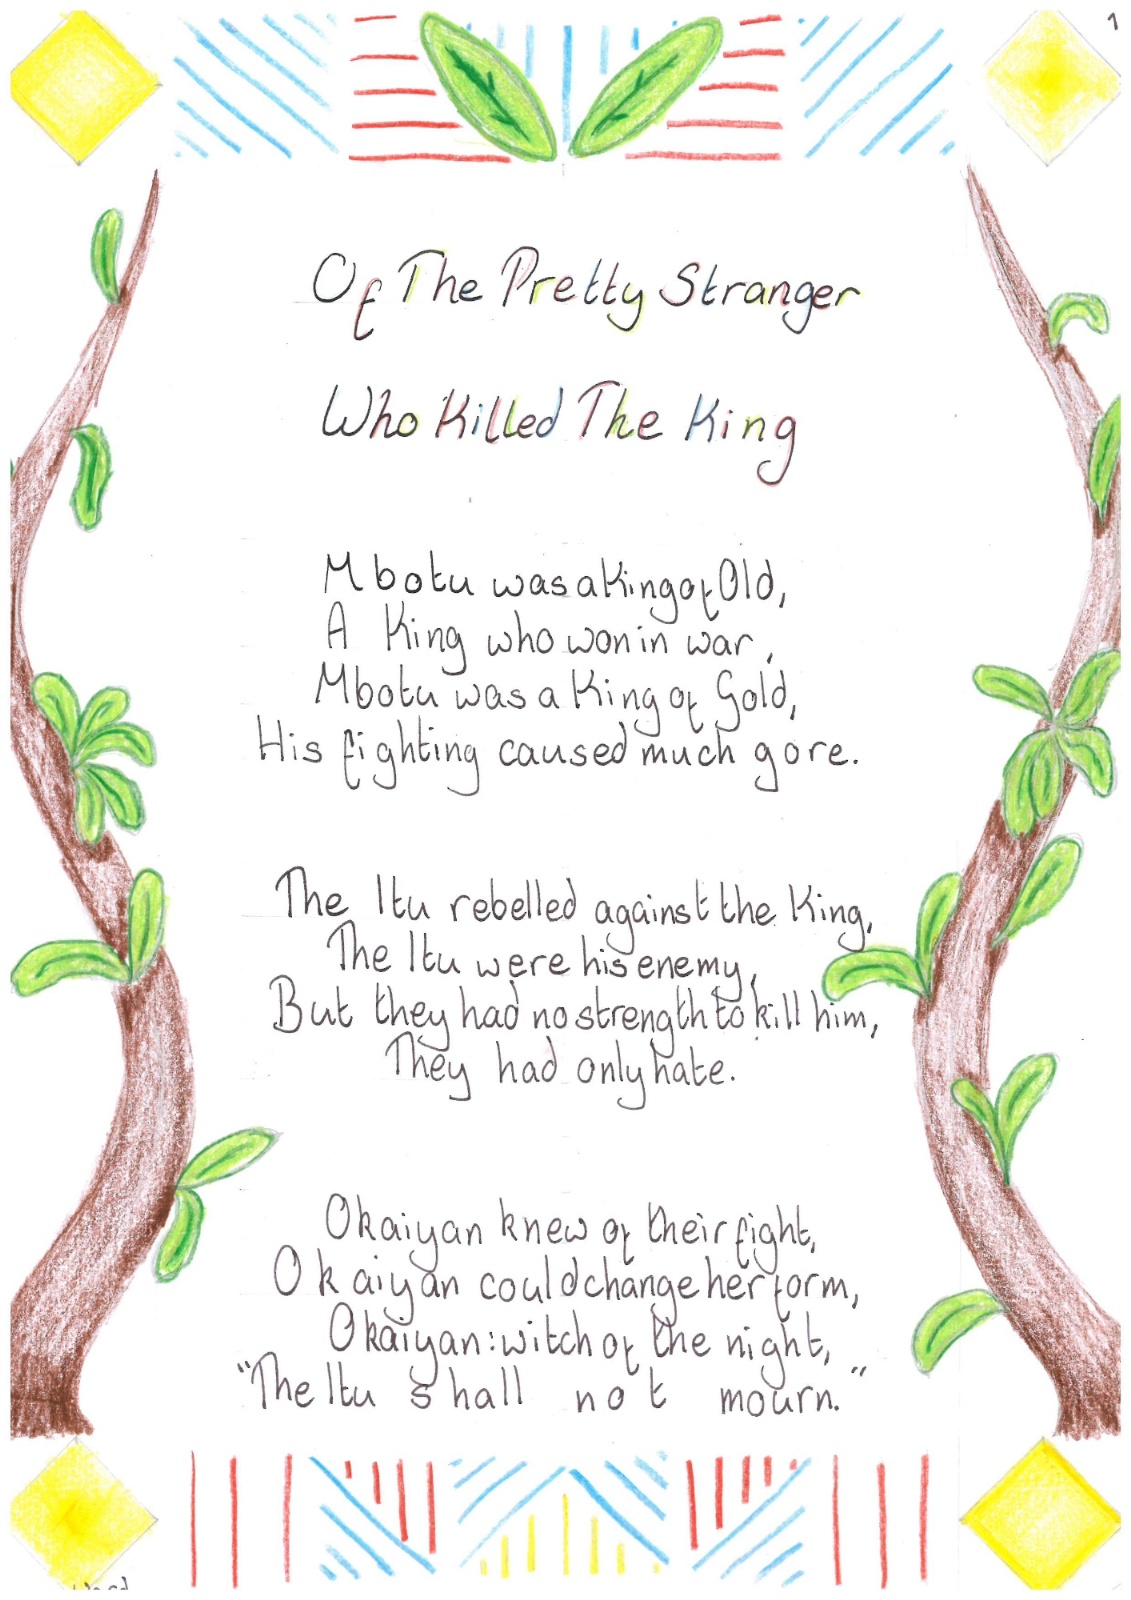 1
Of The Pretty Stranger
Who Killed The King
Mbotu was a King of Old,
A King who won in war,
Mbotu was a King of Gold,
His fighting caused much gore.
The Itu rebelled against the King,
The Itu were his enemy,
But they had no strength to kill him,
They had only hate.
Okaiyan knew of their fight,
Okaiyan could change her form,
Okaiyan: witch of the night,
"The Itu shall not mourn."